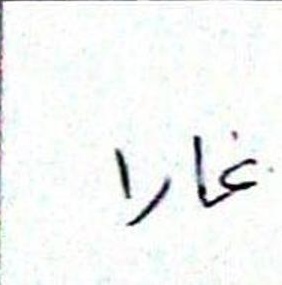 غارا